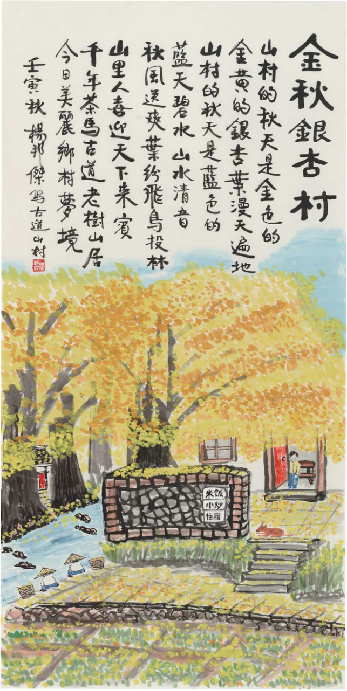 金秋銀杏村
山村的秋天是金色的
金黄的銀杏葉漫天遍地
山村的秋天是藍色的
藍天碧水 山水清音
秋風送爽葉紛飛鳥投林
山里人喜迎天下来賓
千年茶馬古道老樹山居
今日美麗鄉村夢境
壬寅秋 楊邦傑写古道山村
米饭
小炒
住宿